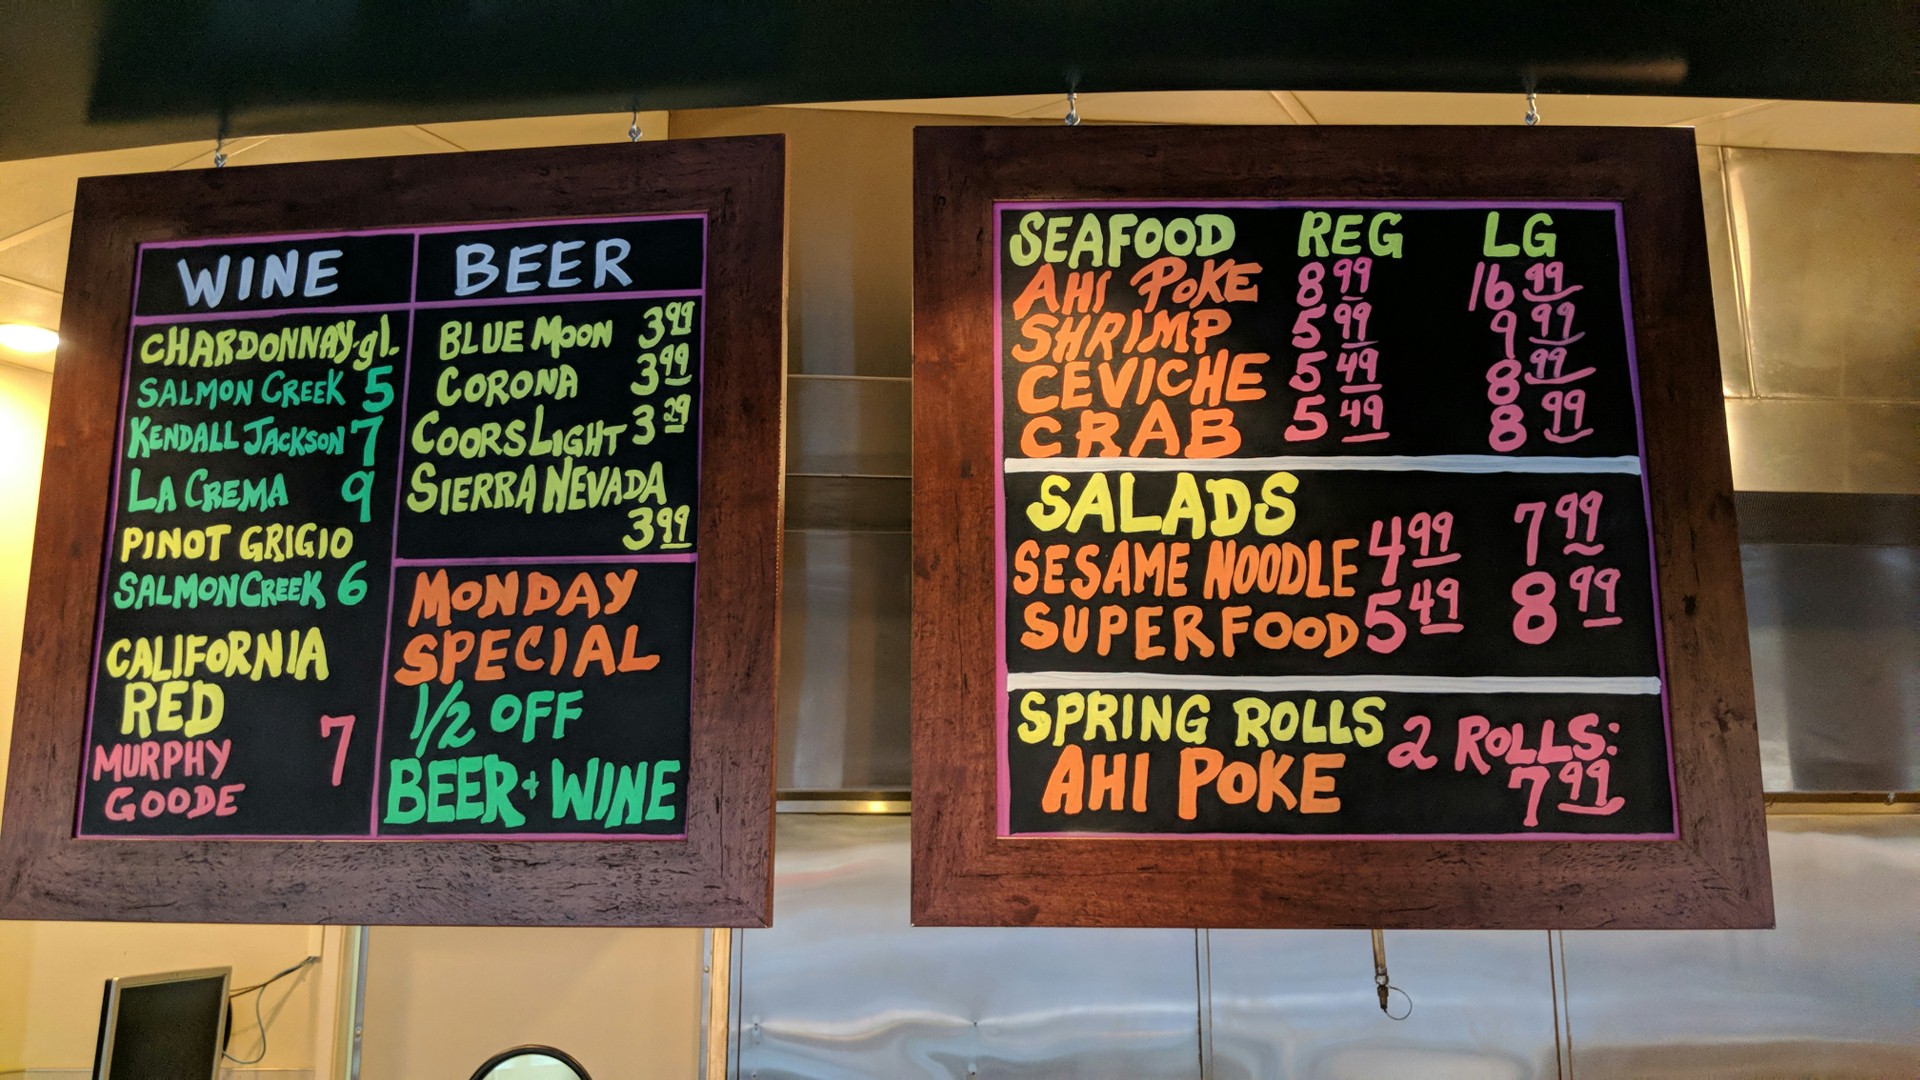 WINE
CHARDONNAY·gl.
SALMON CREEK 5
KENDALL JACKSON 7
LA CREMA 9
PINOT GRIGIO
SALMON CREEK 6
CALIFORNIA
RED
MURPHY
GOODE 7
BEER
BLUE MOON 3 99
CORONA 3 99
COORS LIGHT 3 29
SIERRA NEVADA
3 99
MONDAY
SPECIAL
1/2 OFF
BEER + WINE
SEAFOOD REG LG
AHI POKE 8 99 16 99
SHRIMP 5 99 9 99
CEVICHE 5 49 8 99
CRAB 5 49 8 99
SALADS
SESAME NOODLE 4 99 7 99
SUPERFOOD 5 49 8 99
SPRING ROLLS 2 ROLLS:
AHI POKE 7 99